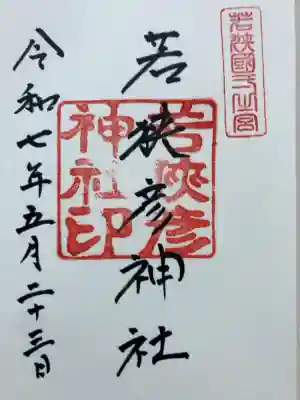 若狭國一之宮
若狭彦神社
若狹彦
神社印
令和七年五月二十三日